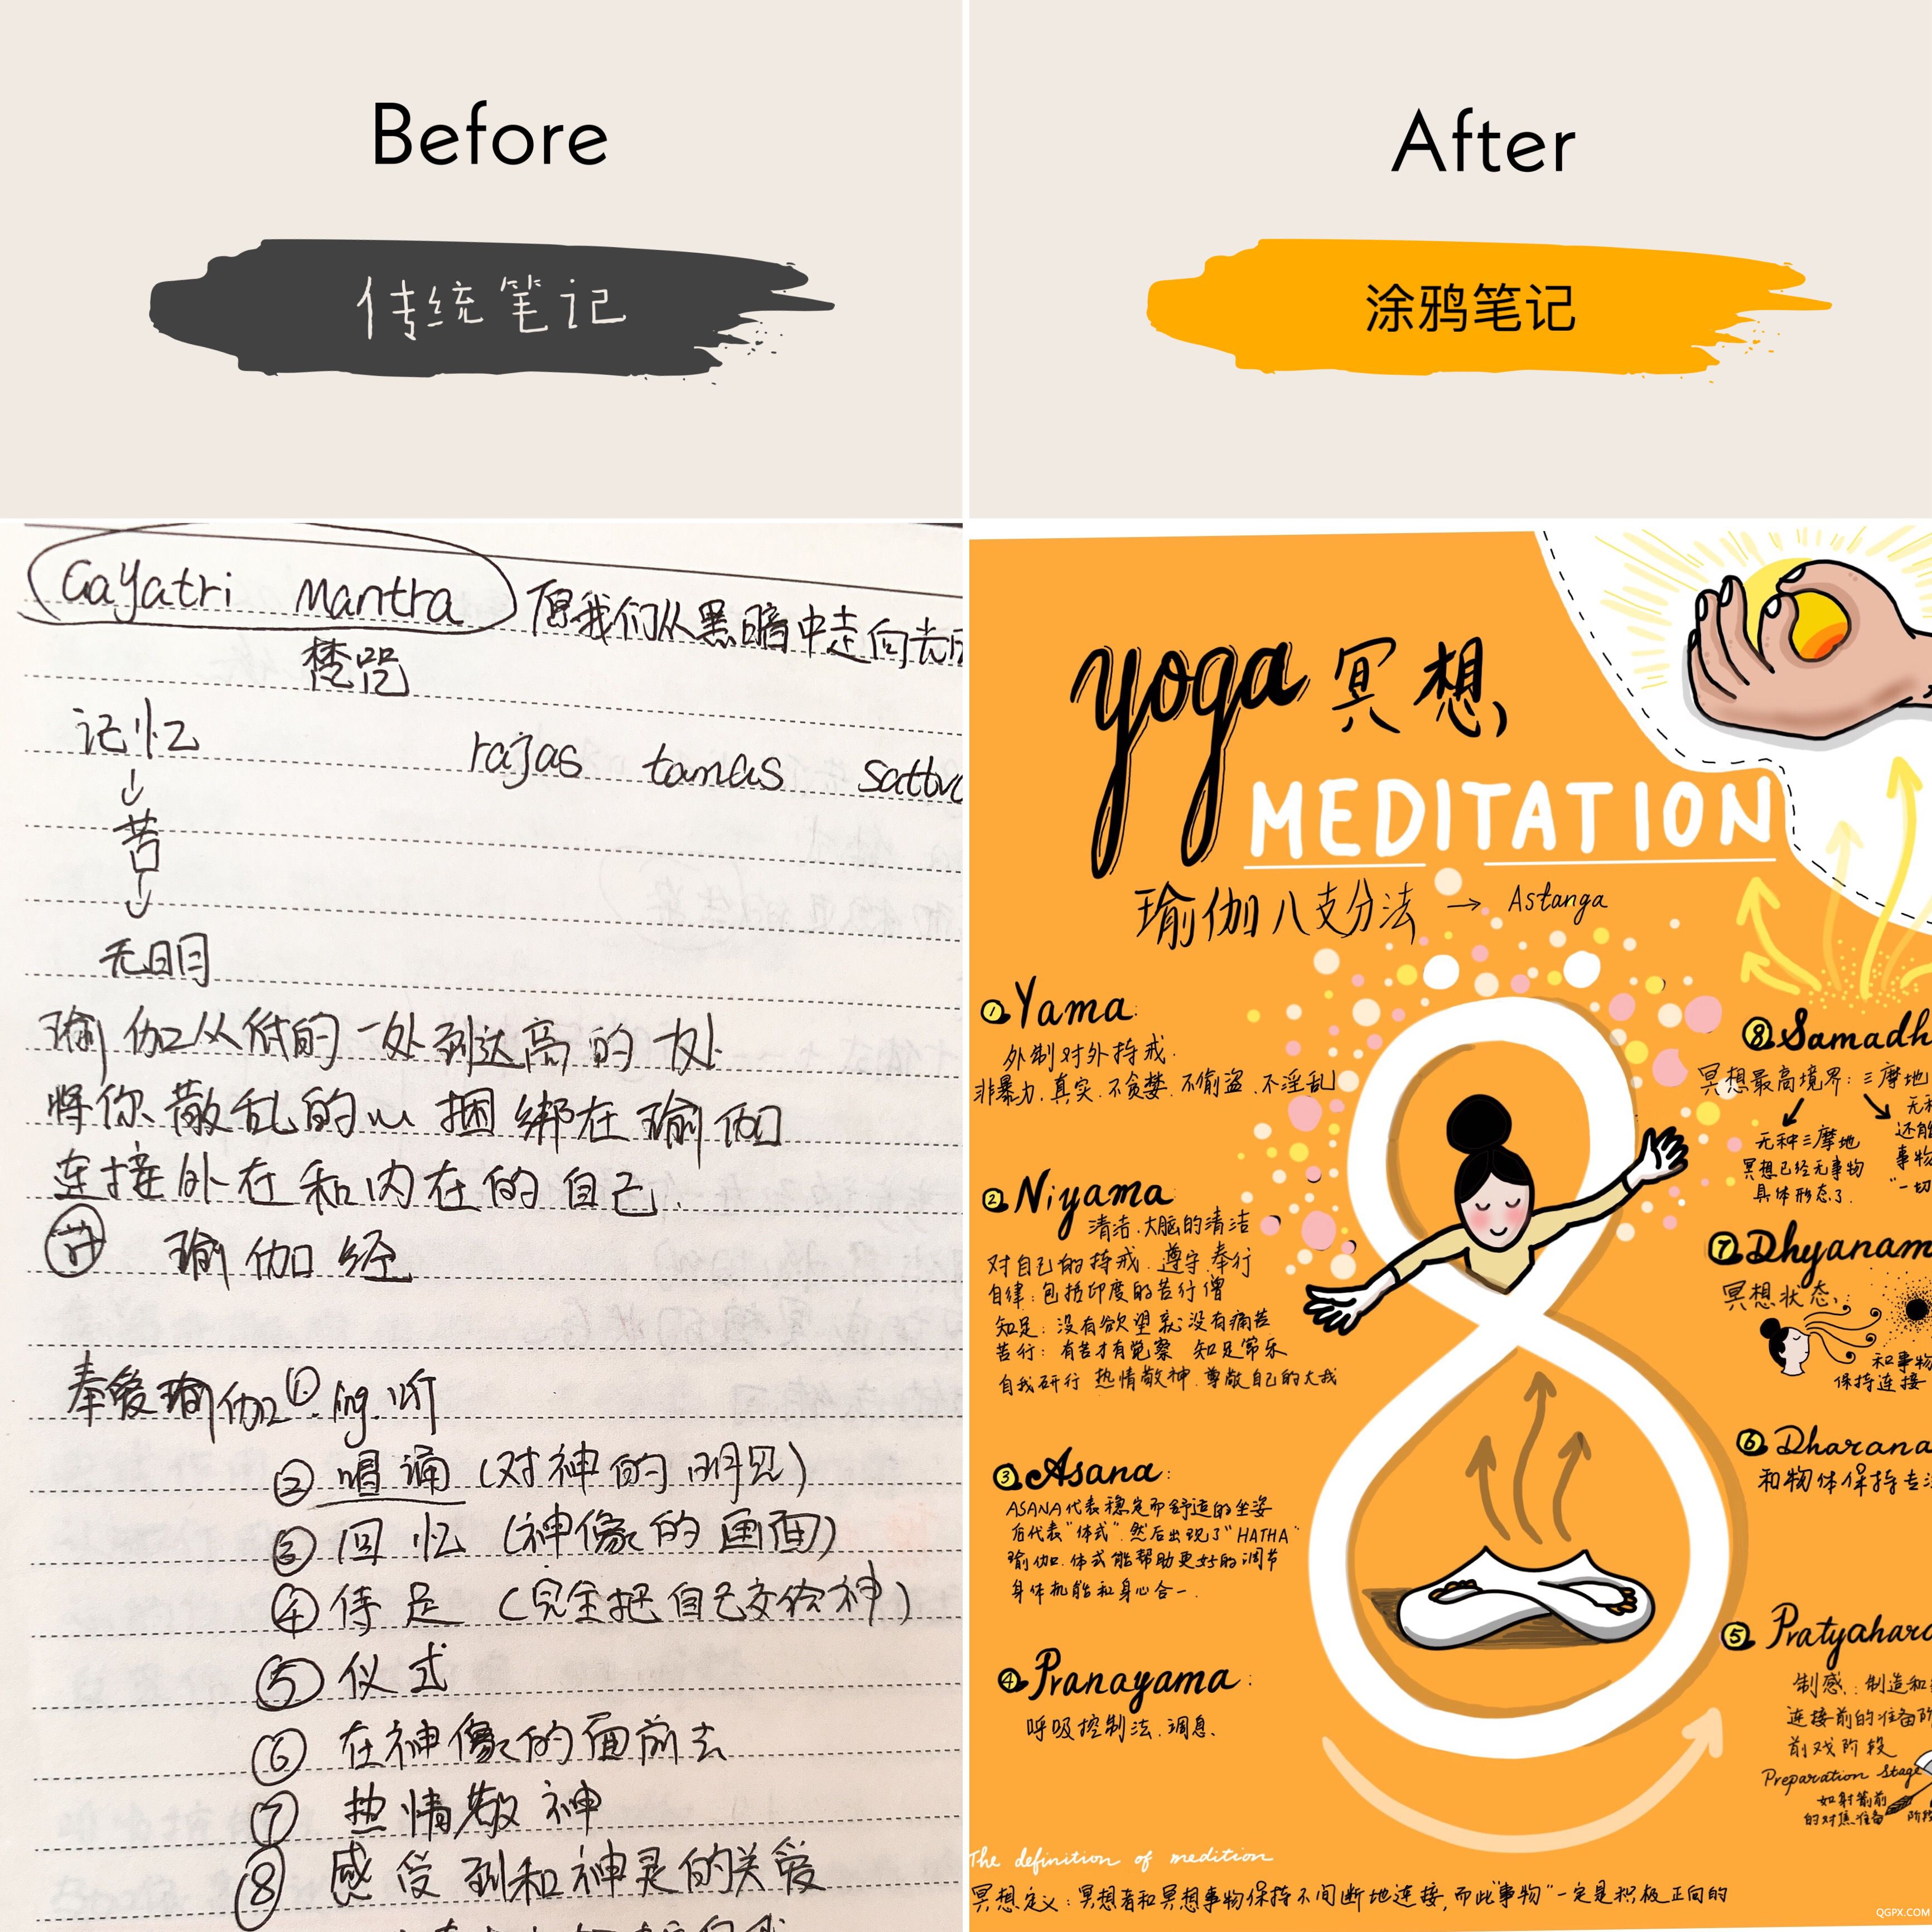 Before
传统笔记
Gayatri Mantra 愿我们从黑暗中走向光
梵咒
记忆
rajas tamas sattv
苦
无明
瑜伽从低的一处到达高的一处
将你散乱的心捆绑在瑜伽
连接外在和内在的自己.
瑜伽经
奉爱瑜伽 ①. ing. 听
② 唱诵 (对神的明见)
③ 回忆 (神像的画面)
④ 侍足 (完全把自己交给神)
⑤ 仪式
⑥ 在神像的面前去
⑦ 热情敬神
⑧ 感受到和神灵的关爱
After
涂鸦笔记
yoga 冥想
MEDITATION
瑜伽八支分法 → Astanga
① Yama:
外制对外持戒.
非暴力.真实.不贪婪.不偷盗.不淫乱
② Niyama
清洁.大脑的清洁
对自己的持戒.遵守.奉行
自律:包括印度的苦行僧
知足:没有欲望就没有痛苦
苦行:有苦才有觉察 知足常乐
自我研行 热情敬神.尊敬自己的大我
③ Asana:
ASANA代表稳定而舒适的坐姿
后代表"体式".然后出现了"HATHA"
瑜伽.体式能帮助更好的调节
身体机能和身心合一.
④ Pranayama:
呼吸控制法.调息.
⑧ Samadh
冥想最高境界:三摩地
无种三摩地
冥想已经无事物
具体形态了.
无
还能
事物
"一切
⑦ Dhyanam
冥想状态:
和事物
保持连接
⑥ Dharana
和物体保持专
⑤ Pratyahara
制感:制造和
连接前的准备阶
前戏阶段
Preparation Stage
如射箭前
的对焦准备
阶段
The definition of medition
冥想定义:冥想者和冥想事物保持不间断地连接,而此"事物"一定是积极正向的
QGPX.COM